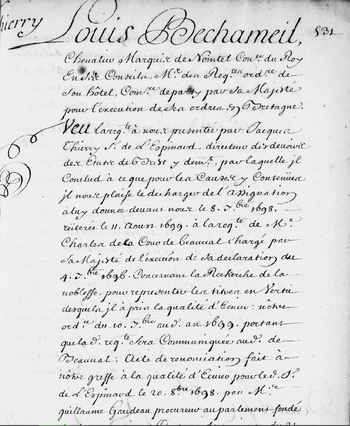 hierry
Louis Bechameil, 531
Cheualier Marquis de Nointel Con.er du Roy
En ses Conseils M.e des Req.tes ord.re de
son hôtel, Com.re depary par Sa Majesté
pour l'execution de ses ordres en Bretagne.
Veu la req.te à nous presentée par Jacques
Thierry S.r de L'Espinard, directeur des deuoirs
des Estats de par laquelle jl
Conclud à ce que pour les Causes y Contenües
jl nous plaise le decharger de l'assignation
à luy donnée deuant nous le 8. 7.bre 1698.
reiterée le 11. Aoust 1699. à la req.te de M.e
Charles de la Cour de Beauual Chargé par
sa Majesté de l'execution de sa declaration du
4. 7.bre 1696. Concernant la Recherche de la
noblesse, pour representer les titres en Vertu
desquels jl à pris la qualité d'Ecuier; nôtre
ord.ce du 20. 7.bre aud. an 1699. portant
que lad. req.te sera Communiquée aud. de
Beauual; Acte de renonciation fait à
nôtre greffe à la qualité d'Ecuier pour led. S.r
de L'Espinard le 20. 8.bre 1698. par M.e
guillaume Gardeau procureur au parlement fondé